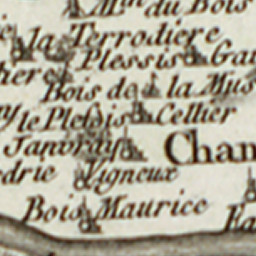 M.on du Bois
la Terrodiere
Plessis Gau
Bois de la Mus
le Plessis Cellier
Janvray
Cham
drie Vigneux
Bois Maurice
Fa